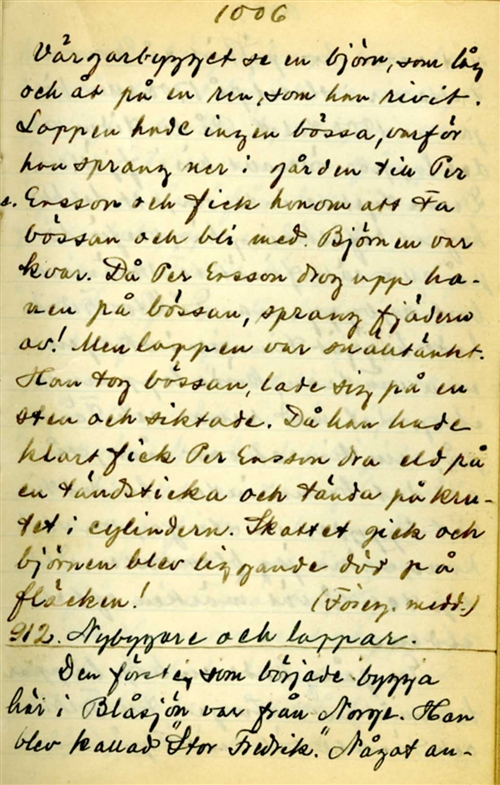 1006
Vårgarbygget se en björn, som låg
och åt på en ren, som han rivit.
Lappen hade ingen bössa, varför
han sprang ner i gården till Per
s. Ersson och fick honom att ta
bössan och bli med. Björnen var
kvar. Då Per Ersson drog upp ha-
nen på bössan, sprang fjädern
av! Men lappen var snälltänkt.
Han tog bössan, lade sig på en
sten och siktade. Då han hade
klart fick Per Ersson dra eld på
en tändsticka och tända på kru-
tet i cylindern. Skottet gick och
björnen blev liggande död på
fläcken! (Föreg. medd.)
912. Nybyggare och lappar.
Den förste, som började bygga
här i Blåsjön var från Norge. Han
blev kallad "Stor Fredrik." Något an-